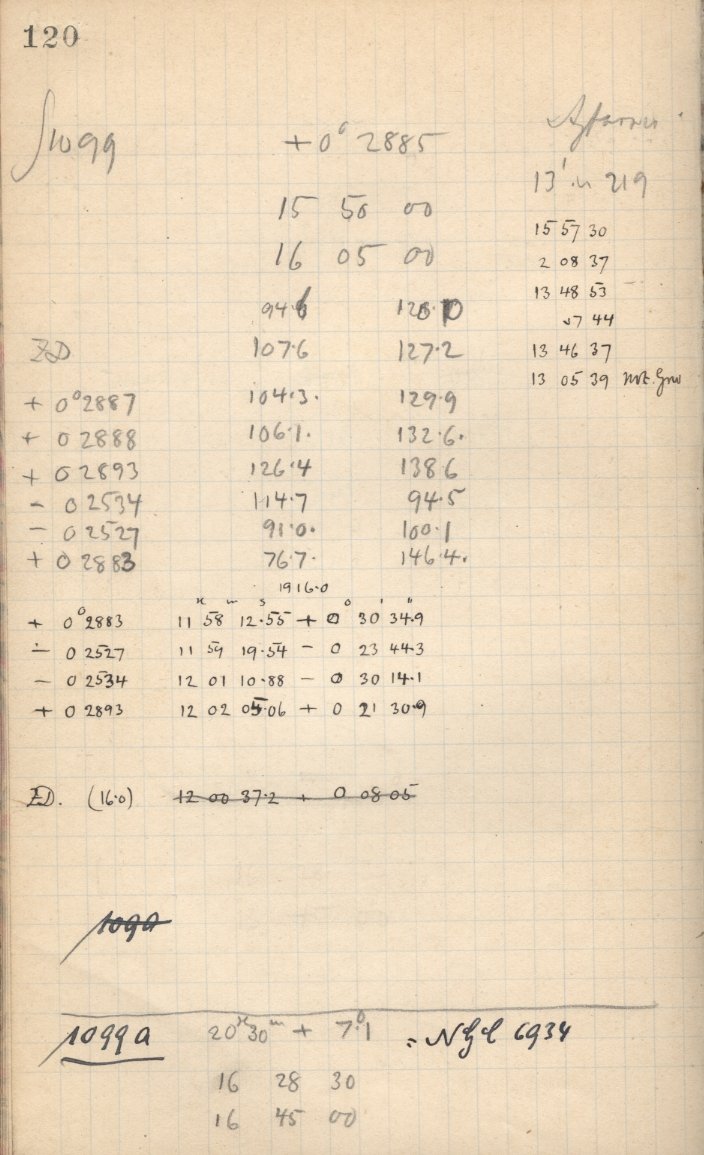 120
1099 + 0° 2885
13' in 219
15 50 00 15 57 30
16 05 00 2 08 37
13 48 53
94.6 7 44
ZD 107.6 127.2 13 46 37
+ 0° 2887 104.3. 129.9 13 05 39 not.
+ 0 2888 106.1. 132.6.
+ 0 2893 126.4 138.6
- 0 2534 114.7 94.5
- 0 2527 91.0. 100.1
+ 0 2883 76.7. 146.4.
1916.0
H m s ° ' "
+ 0° 2883 11 58 12.55 + 0 30 34.9
- 0 2527 11 59 19.54 - 0 23 44.3
- 0 2534 12 01 10.88 - 0 30 14.1
+ 0 2893 12 02 05.06 + 0 21 30.9
ZD. (16.0) 12 00 37.2 + 0 08 05
109a
1099a 20H 30m + 7°.1 = NGC 6934
16 28 30
16 45 00